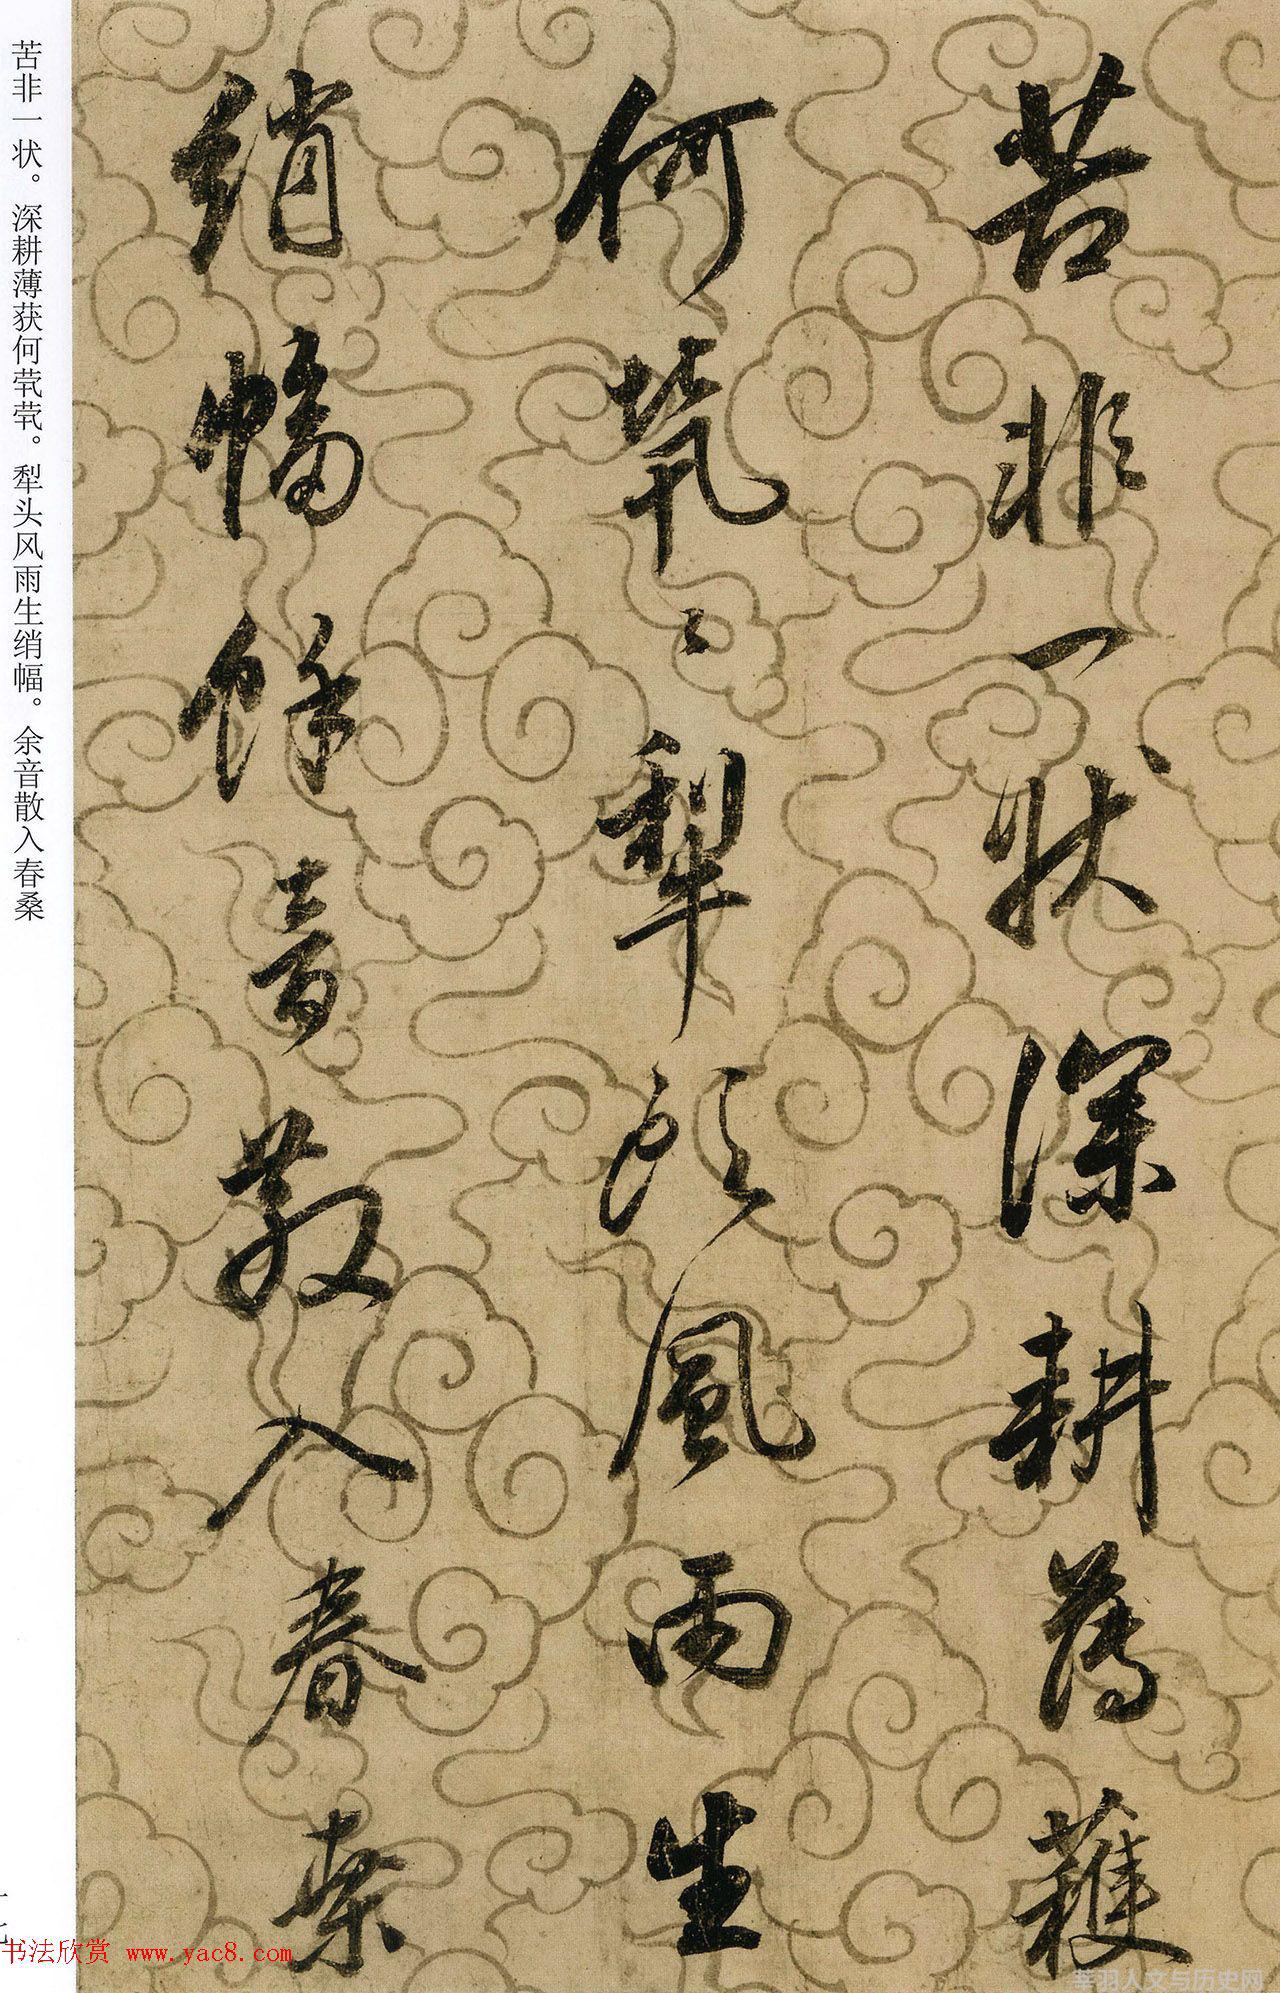 苦非一状深耕薄穫
何茕〻犁頭風雨生
綃幅餘音散入春桑
苦非一状。深耕薄获何茕茕。犁头风雨生绡幅。余音散入春桑
十七
书法欣赏 www.yac8.com
莘羽人文与历史网